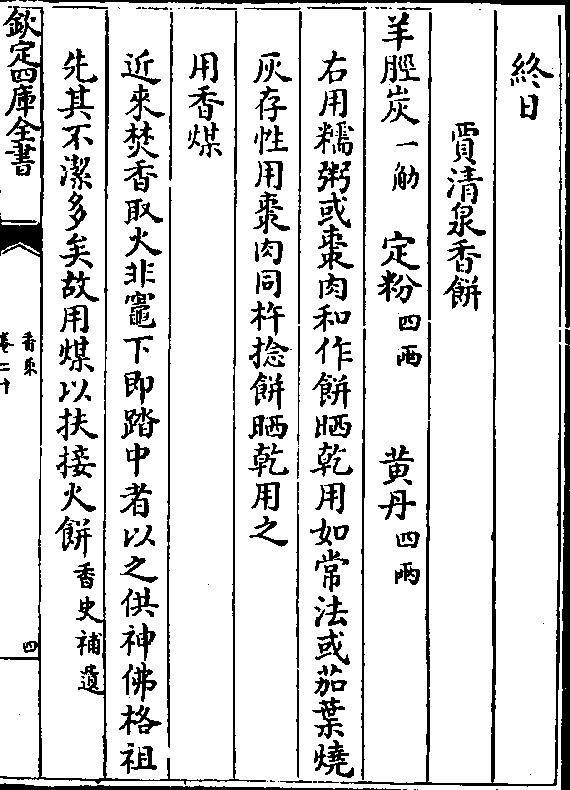 終日
賈清泉香餅
羊脛炭一觔 定粉四兩 黃丹四兩
右用糯粥或棗肉和作餅晒乾用如常法或茄葉燒
灰存性用棗肉同杵捻餅晒乾用之
用香煤
近來焚香取火非竈下即踏中者以之供神佛格祖
先其不潔多矣故用煤以扶接火餅香史補遺
欽定四庫全書
香乘
卷二十
四